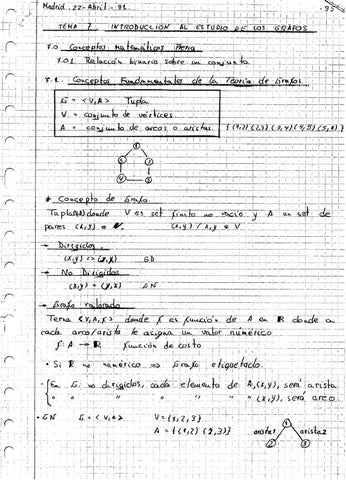 Madrid, 22-Abril-91
TEMA 7 INTRODUCCIÓN AL ESTUDIO DE LOS GRAFOS
7.0 Conceptos Matemáticos Previa
7.0.1 Relación binaria sobre un conjunto
7.1. Conceptos Fundamentales de la Teoría de Grafos
G = <V,A> Tupla
V = conjunto de vértices
A = conjunto de arcos o aristas. {(1,2)(2,3)(3,4)(4,5)(5,1)}
* Concepto de Grafo
Tupla donde V es set finito no vacío y A un set de
pares (x,y) (x,y) / x,y ∈ V
→ Dirigidos
(x,y) <> (y,x) GD
→ No Dirigidos
(x,y) = (y,x) GN
→ Grafo valorado
Terna <V,A,f> donde f es función de A en R donde a
cada arco/arista le asigna un valor numérico
f: A → R función de costo
· Si R no numérico => Grafo etiquetado
- En G. no dirigidos, cada elemento de A, (x,y), será arista
" " " " " " " (x,y), será arco.
- GN G = <V,A> V = {1,2,3}
A = {(1,2) (2,3)}
arista1 arista2
1
2 3